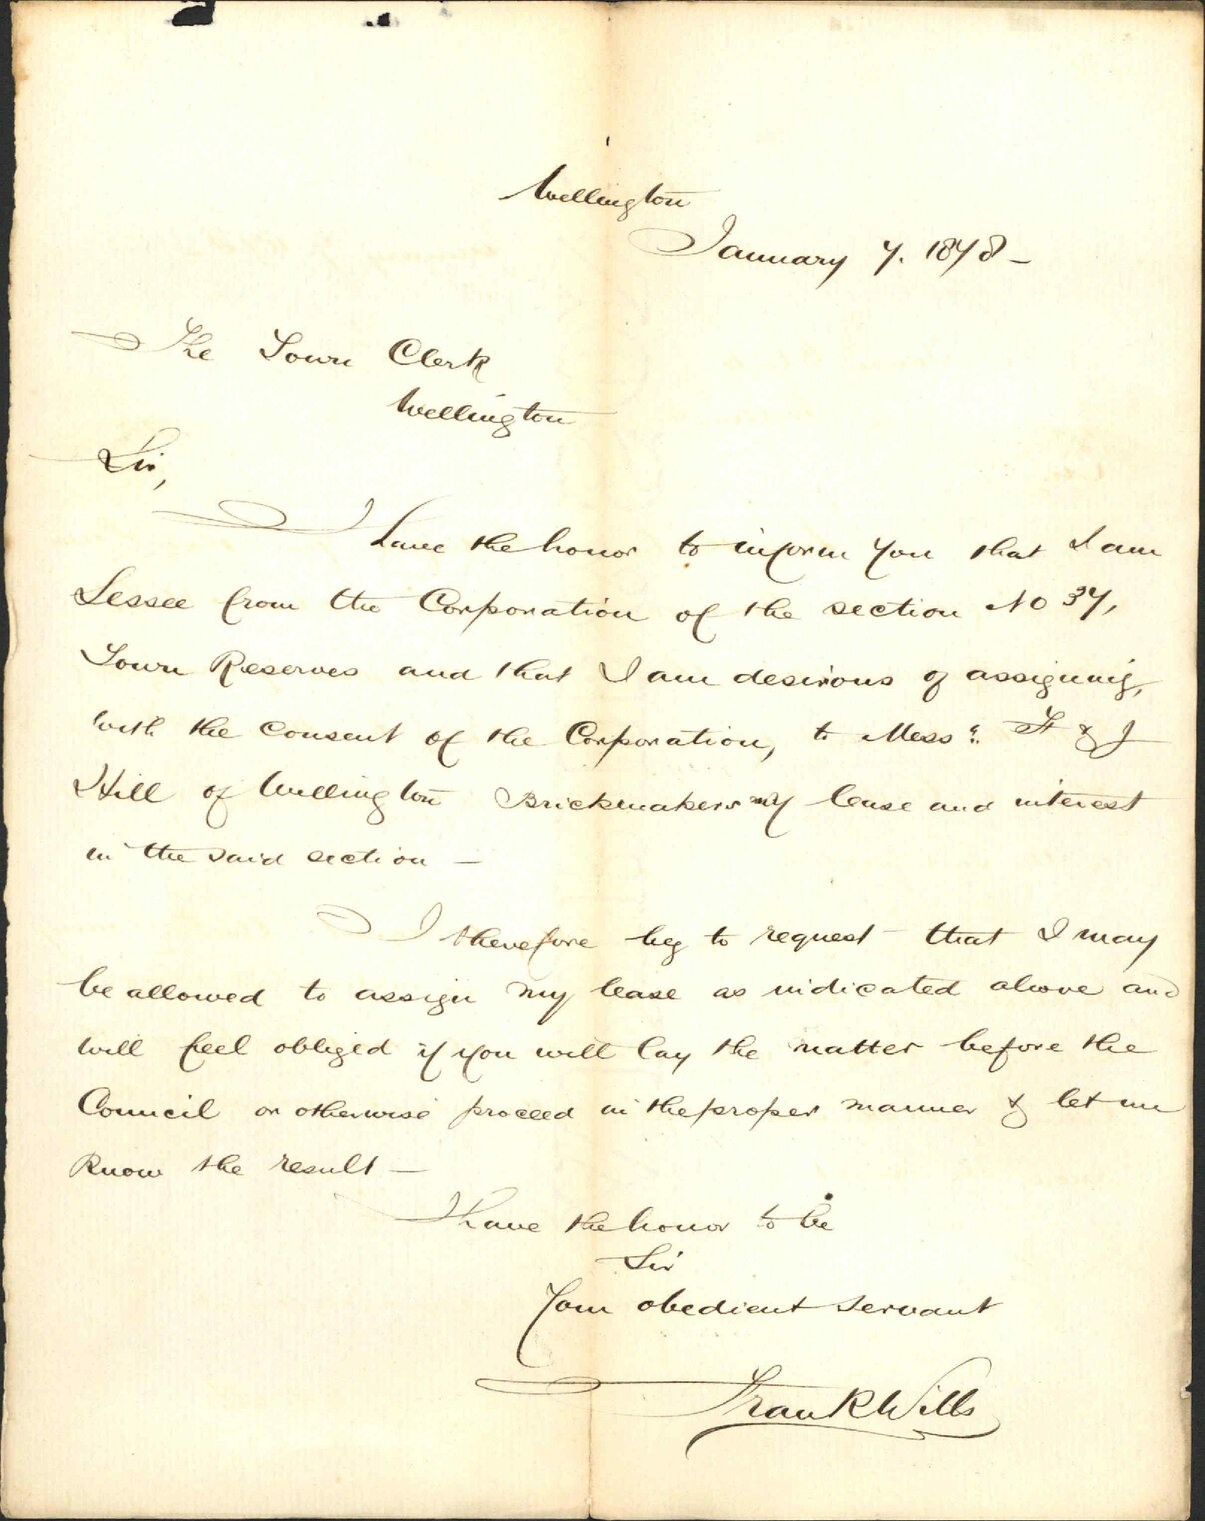 Wellington
January 7. 1878 –
The Town Clerk
Wellington
Sir,
I have the honor to inform you that I am
Lessee from the Corporation of the section No 37,
Town Reserves and that I am desirous of assigning,
with the consent of the Corporation, to Messrs. H & J
Hill of Wellington Brickmakers my lease and interest
in the said section –
I therefore beg to request that I may
be allowed to assign my lease as indicated above and
will feel obliged if you will lay the matter before the
Council or otherwise proceed in the proper manner & let me
know the result –
I have the honor to be
Sir
Your obedient servant
Frank Wills